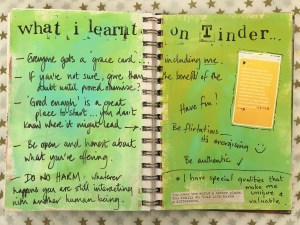 what i learnt on Tinder...
– Everyone gets a 'grace card'... including me.
– If you're not sure, give them the benefit of the
doubt until proved otherwise?
– 'Good enough' is a great
place to start... you don't
know where it might lead →
– Be open and honest about
what you're offering.
– DO NO HARM: whatever
happens you are still interacting
with another human being.
Have fun!
Be flirtatious –
its energising
Be authentic ✓
* I have special qualities that
make me
unique &
valuable